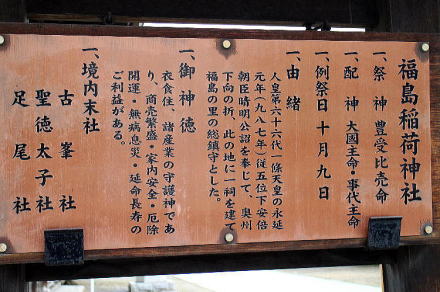 福島稲荷神社
一、祭神 豊受比売命
一、配神 大國主命・事代主命
一、例祭日 十月九日
一、由緒
人皇第六十六代一條天皇の永延
元年（九八七年）従五位下安倍
朝臣晴明公詔を奉じて、奥州
下向の折、此の地に一祠を建て
福島の里の総鎮守とした。
一、御神徳
衣食住、諸産業の守護神であ
り、商売繁盛・家内安全・厄除
開運・無病息災・延命長寿の
ご利益がある。
一、境内末社
古峯社
聖徳太子社
足尾社